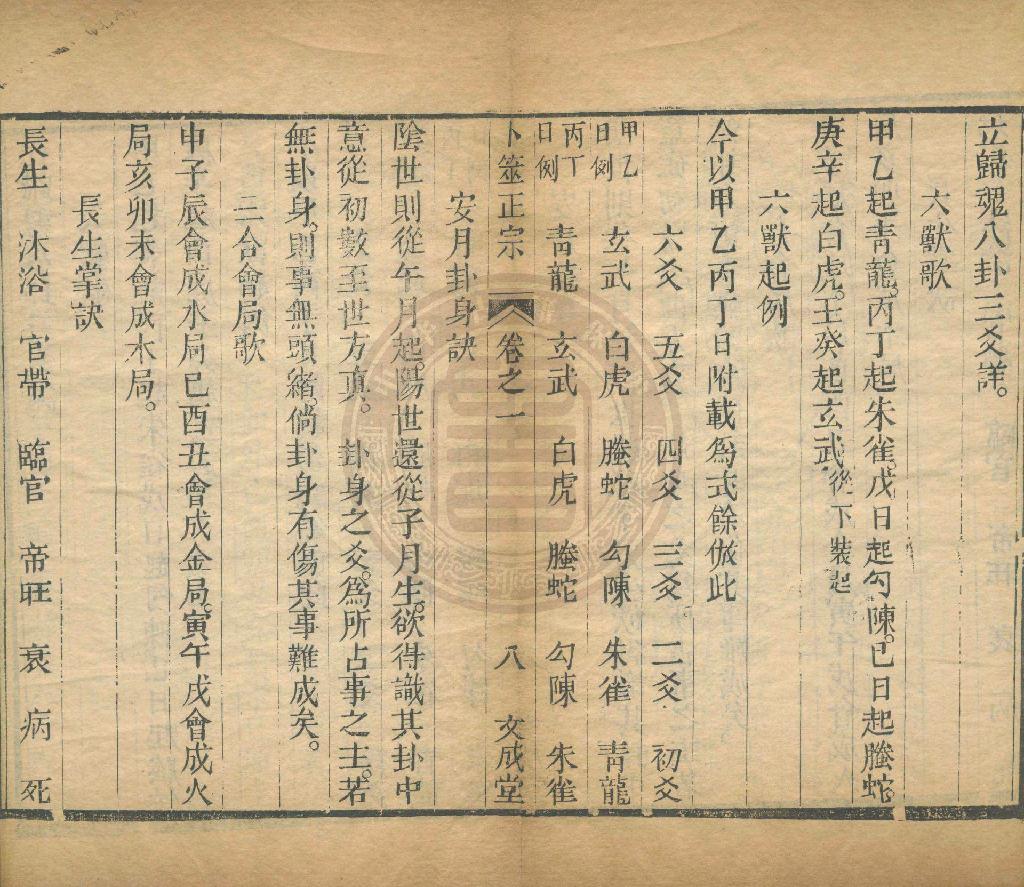 立歸魂八卦三爻詳。
六獸歌
甲乙起青龍。丙丁起朱雀。戊日起勾陳。巳日起螣蛇
庚辛起白虎。壬癸起玄武。從下裝起
六獸起例
今以甲乙丙丁日附載爲式餘倣此
六爻 五爻 四爻 三爻 二爻 初爻
甲乙日例 玄武 白虎 螣蛇 勾陳 朱雀 青龍
丙丁日例 青龍 玄武 白虎 螣蛇 勾陳 朱雀
卜筮正宗 卷之一 八 文成堂
安月卦身訣
陰世則從午月起。陽世還從子月生。欲得識其卦中
意從初數至世方真。 卦身之爻。爲所占事之主。若
無卦身。則事無頭緒。倘卦身有傷其事難成矣。
三合會局歌
申子辰會成水局巳酉丑會成金局。寅午戌會成火
局亥卯未會成木局。
長生掌訣
長生 沐浴 官帶 臨官 帝旺 衰 病 死